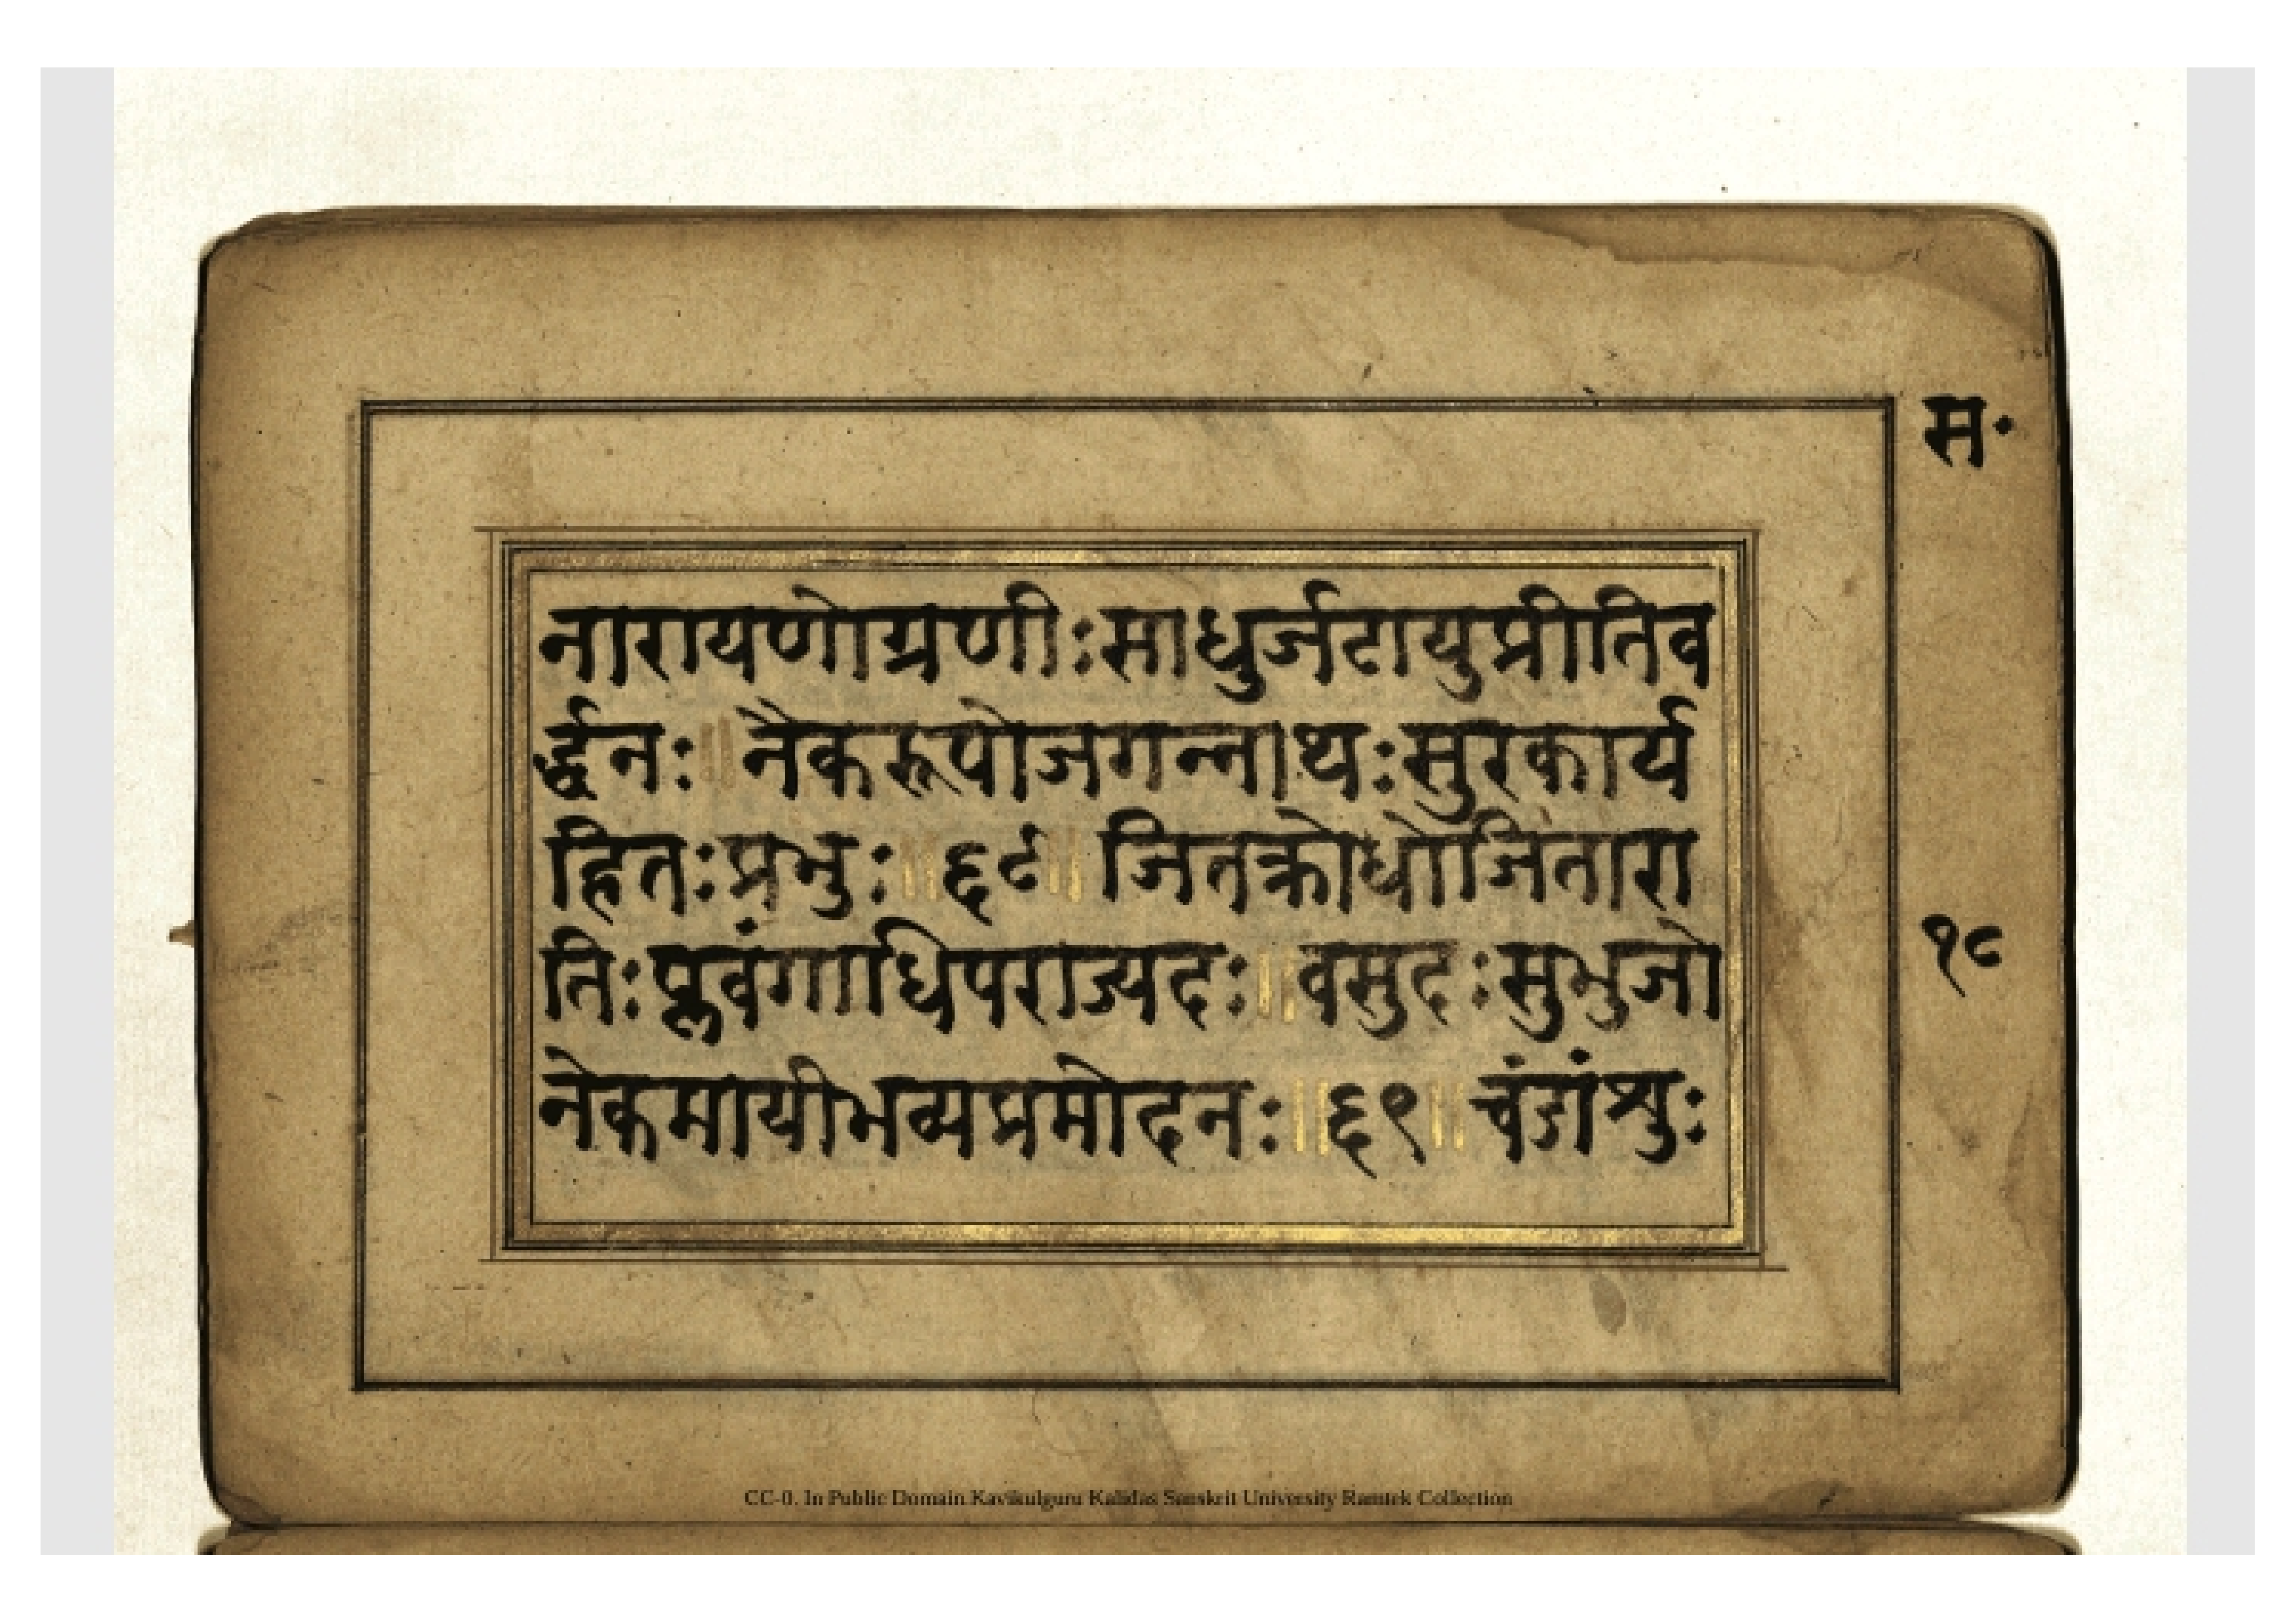 स॰
नारायणोग्रणीःसाधुर्जटायुप्रीतिव
र्द्धनः॥ नैकरूपोजगन्नाथःसुरकार्य
हितःप्रभुः॥६८॥ जितक्रोधोजितारा
तिःप्लवंगाधिपराज्यदः॥वसुदःसुभुजो
नेकमायीभव्यप्रमोदनः॥६९॥ चंडांश्रुः
१८
CC-0. In Public Domain Kavikulguru Kalidas Sanskrit University Ramtek Collection